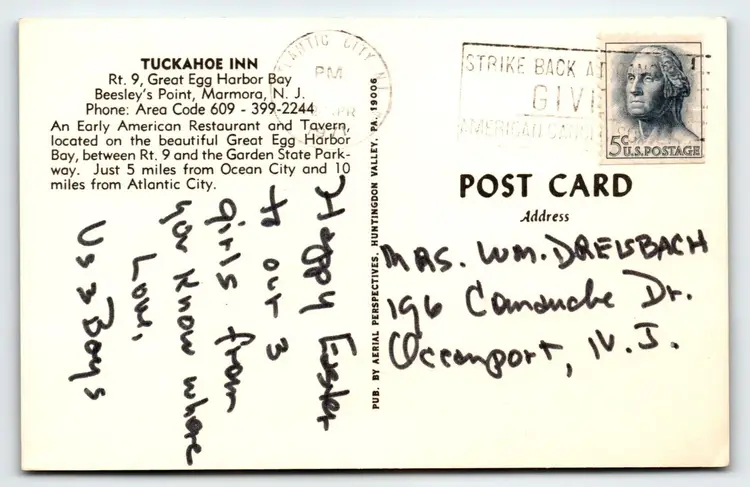 TUCKAHOE INN
Rt. 9, Great Egg Harbor Bay
Beesley's Point, Marmora, N. J.
Phone: Area Code 609 - 399-2244
An Early American Restaurant and Tavern,
located on the beautiful Great Egg Harbor
Bay, between Rt. 9 and the Garden State Park-
way. Just 5 miles from Ocean City and 10
miles from Atlantic City.
Happy Easter
to our 3
girls from
you know where
Love,
Us 3 Boys
PUB. BY AERIAL PERSPECTIVES, HUNTINGDON VALLEY, PA. 19006
ATLANTIC CITY, N.J.
PM
APR
STRIKE BACK AT
GIVE
AMERICAN CANCER
5c
U.S. POSTAGE
POST CARD
Address
MRS. WM. DREISBACH
196 Comanche Dr.
Oceanport, N.J.